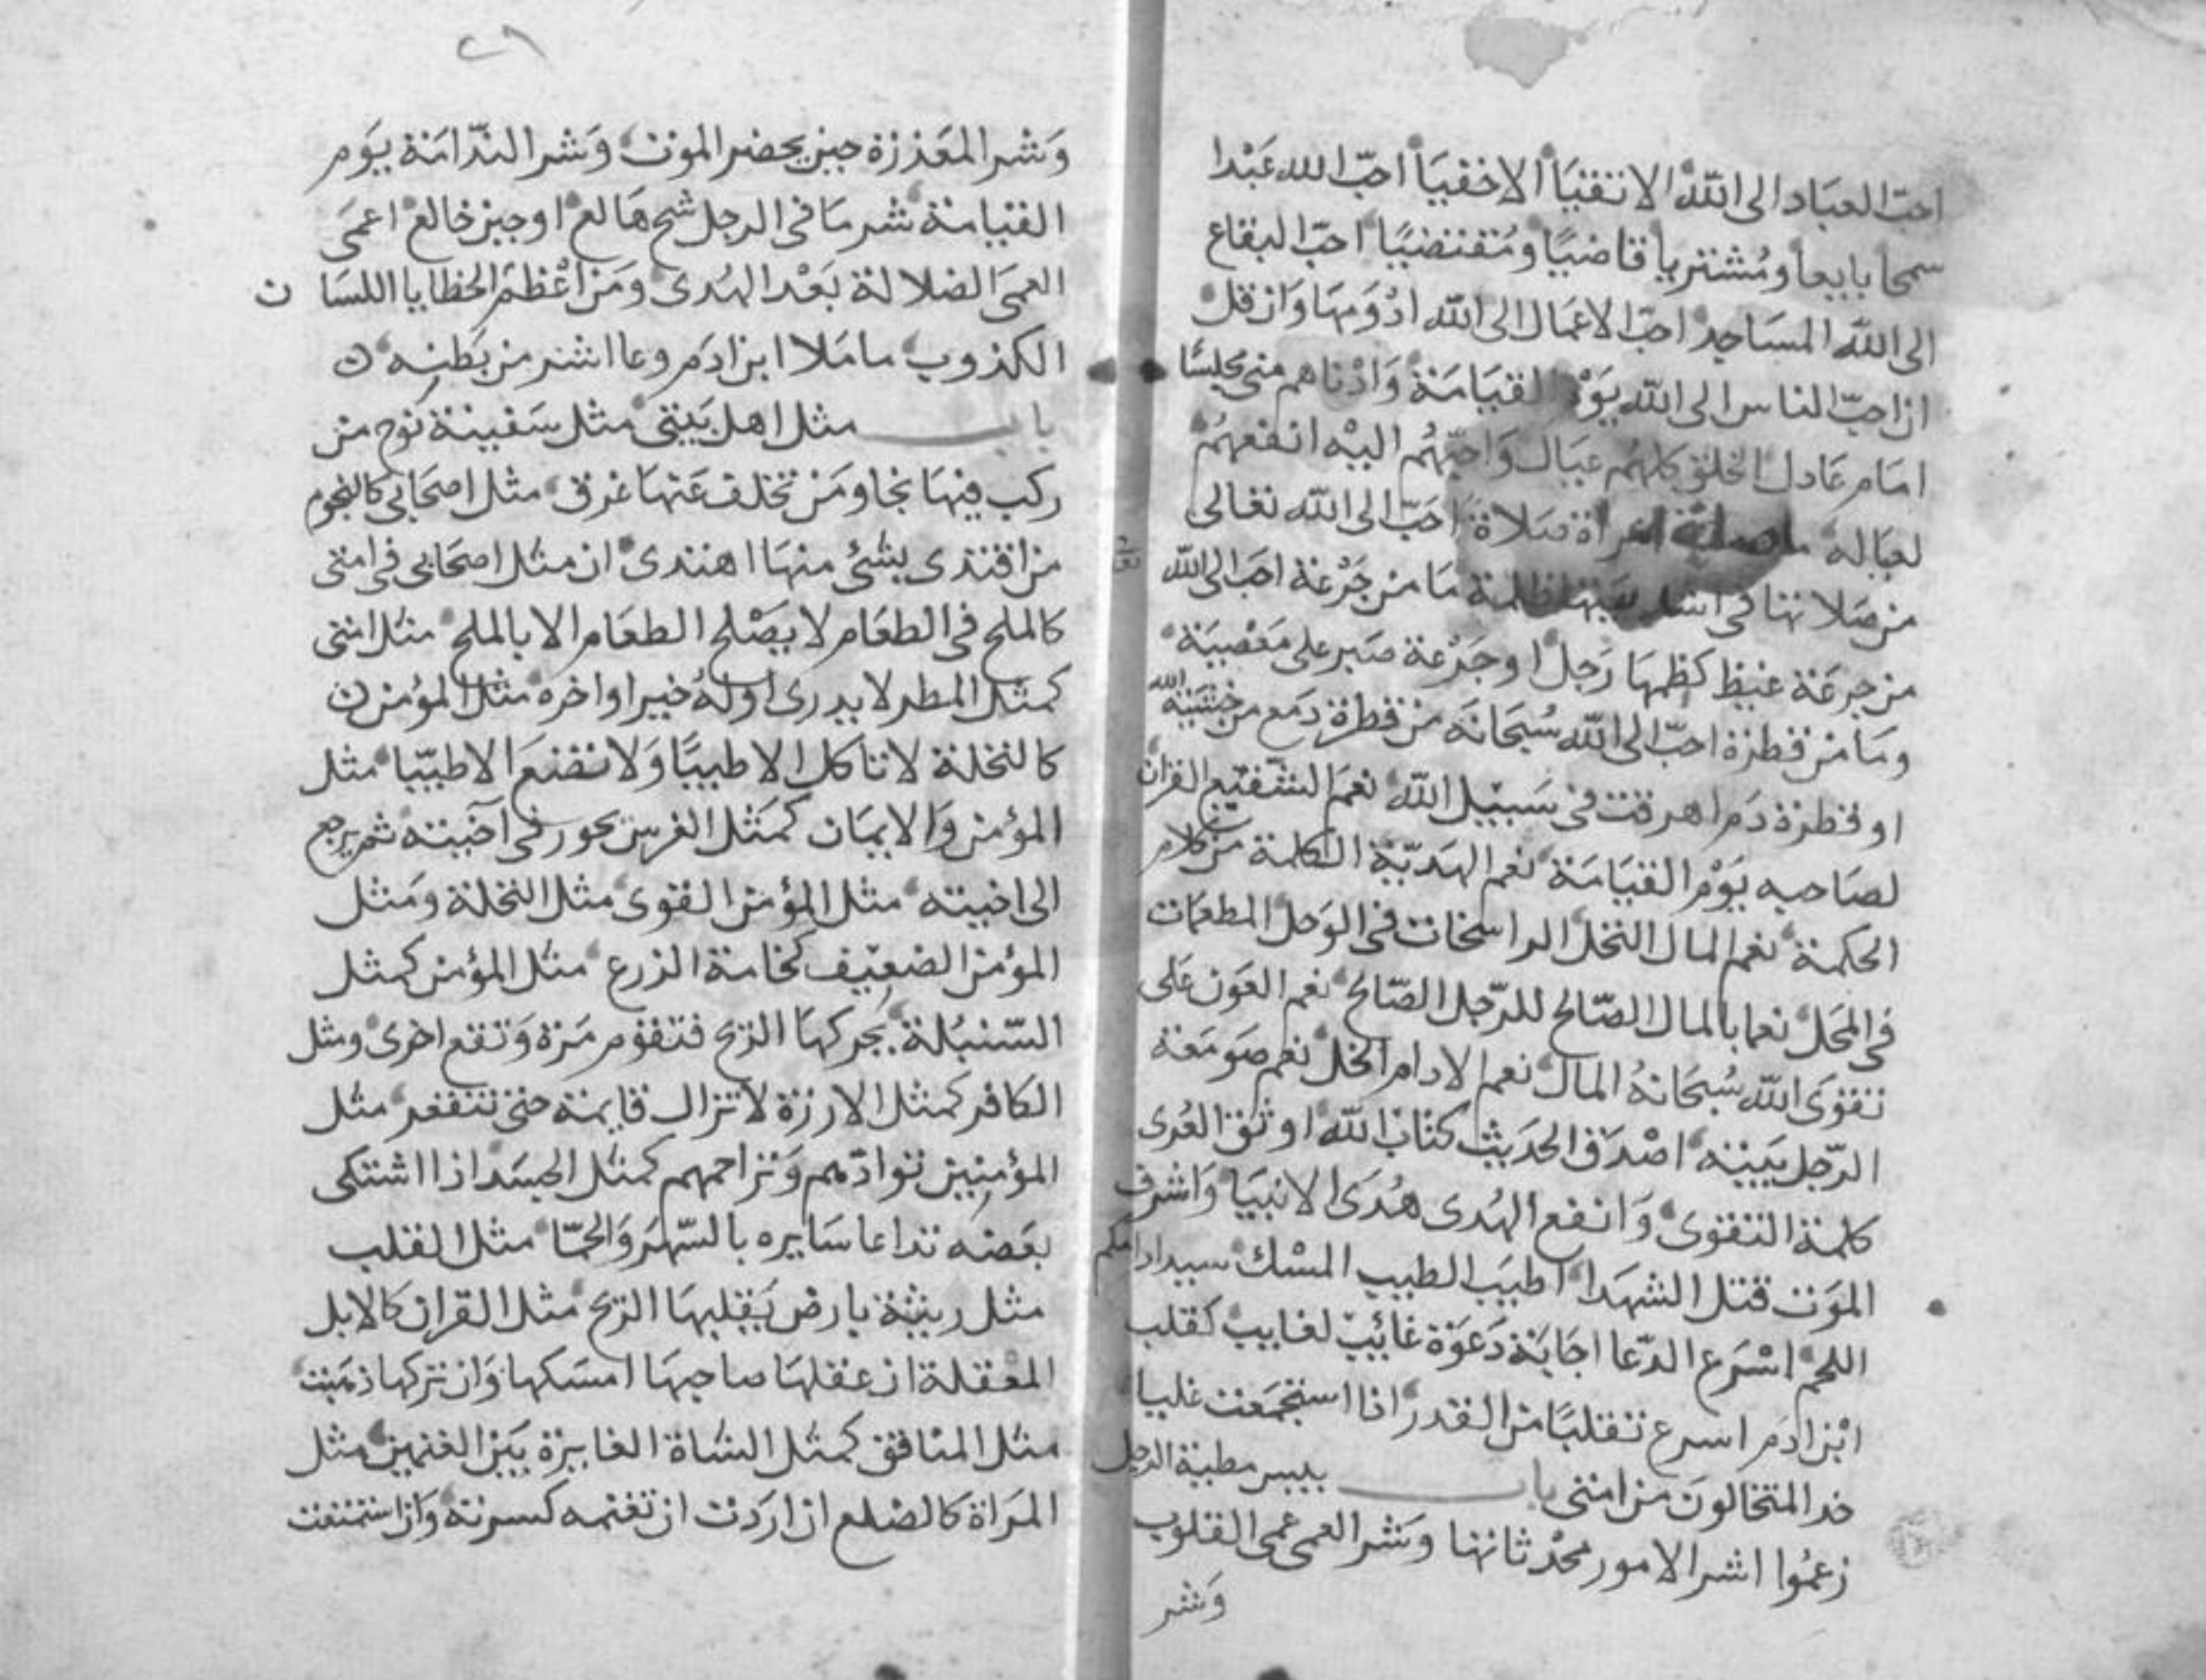 احبّ العباد الى الله الاتقيا الاخفيا احبّ الله عبدا
سمحا بايعا ومُشتريا قاضيًا ومُقتضيًا احبّ البقاع
الى الله المساجد احبّ الاعمال الى الله ادْوَمها وان قل
ان احبّ الناس الى الله يَوْم القيامة وادْناهم منى مجلسًا
امام عادل الخلق كلهُم عيال واحبّهُم اليْه انفعهُم
لعياله ما صلت امراة صلاة احبّ الى الله تعالى
من صلاتها فى اشد بيتها ظلمة ما من جَرْعة احب الى الله
من جرعة غيظ كظمها رَجل او جَرْعة صبر على مَعْصية
وما من قطرة احبّ الى الله سُبحانه من قطرة دمع من خشية الله
او قطرة دم اهرقت فى سبيل الله نعم الشفيع القران
لصاحبه يَوْم القيامة نعم الهديّة الكلمة من كلام
الحكمة نعم المال النخل الراسخات فى الوَحل المطعمات
فى المَحَل نعما بالمال الصّالح للرّجل الصّالح نعم العَون على
تقوَى الله سُبحانهُ المال نعم الادام الخل نعم صومعة
الرّجل بيته اصْدَق الحديث كتاب الله اوثق العُرى
كلمة التقوى وانفع الهُدى هُدَى الانبيا واشرف
المَوَت قتل الشهدا اطيب الطيب المسْك سيد ادامكم
اللحم اسْرَع الدّعا اجابَة دَعوَة غائب لغايب كقلب
ابْن ادَم اسرع تقلبًا من القدر اذا استجمَعت غليا
خد المتخالون من امتى باب بيس مطية الرجل
زعمُوا اشر الامور محْدثاتها وشر العمى عمى القلوب
وَشر
٢٦
وَشر المعَذرة حين يحضر الموت وَشر الندّامَة يَوم
القيامة شر ما فى الرجل شح هالع او جبن خالع اعمَى
العمَى الضلالة بَعْد الهُدى وَمن اعْظم الخطايا اللسان
الكذوب ما ملا ابن ادَم وعا اشر من بَطنه
باب مثل اهل بَيتى مثل سَفينة نوح من
ركب فيها نجا ومَن تخلف عَنها غرق مثل اصحابى كالنجوم
من اقتدى بشئ منها اهتدى ان مثل اصحابى فى امتى
كالملح فى الطعام لا يصْلح الطعَام الا بالملح مثل امتى
كمثل المطر لا يدرى اولهُ خير او اخره مثل المؤمن
كالنخلة لا تاكل الا طيبًا وَلا تضَع الا طيّبا مثل
المؤمن وَالايمان كمَثل الفرس يحور فى اخيته ثم يرجع
الى اخيته مثل المؤمن القوى مثل النخلة ومَثل
المؤمن الضعيف كخامة الزرع مثل المؤمن كمثل
السّنبُلة يحركها الريح فتقوم مَرة وَتقع اخرى ومثل
الكافر كمثل الارزة لا تزال قايمة حتى تنقعر مثل
المؤمنين توادّهم وَتراحمهم كمثل الجسَد اذا اشتكى
بعَضه تداعا سَايره بالسّهَر وَالحمّا مثل القلب
مثل ريشة بارض يَقلبها الريح مثل القران كالابل
المعقلة ان عقلها صاحبها امسَكها وَان تركها ذهَبت
مثل المنافق كمثل الشاة العايرة بَين الغنمين مثل
المَراة كالضلع ان ارَدت ان تقيمه كسرته وَان استمتعت